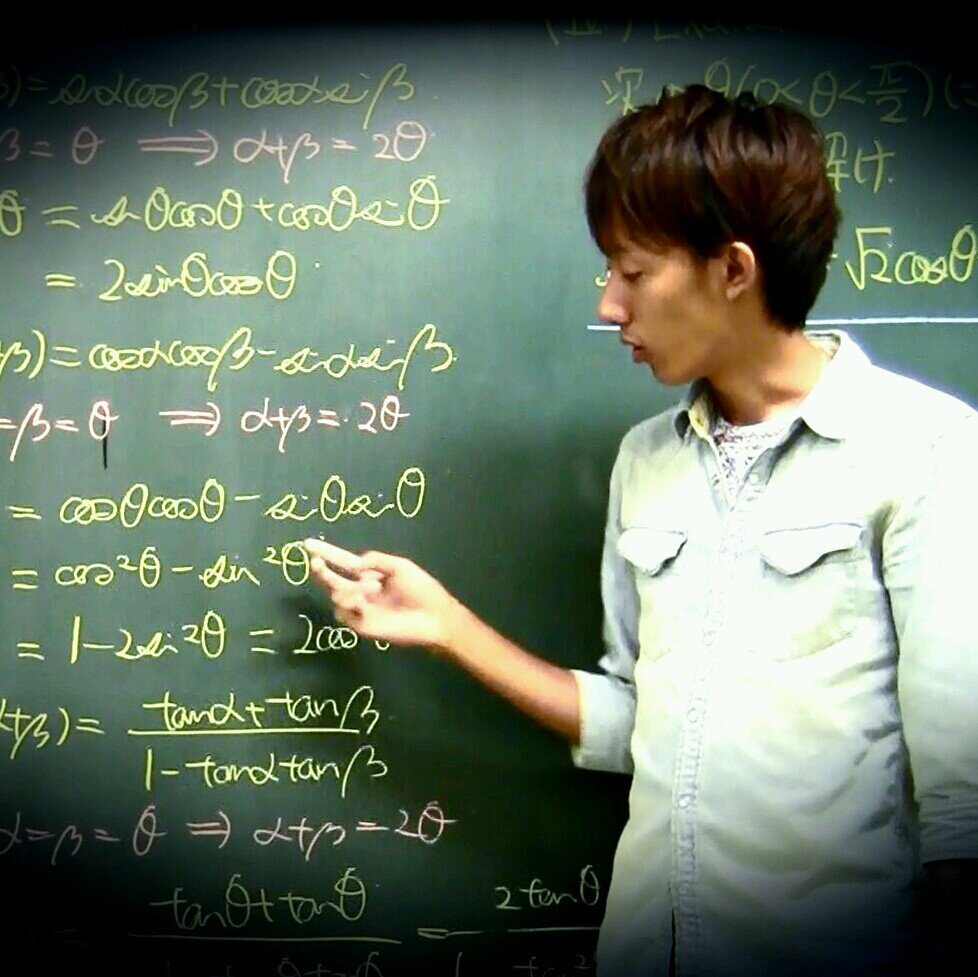 )=sinαcosβ+cosαsinβ
β=θ ⟹ α+β=2θ
θ = sinθcosθ+cosθsinθ
= 2sinθcosθ
β)=cosαcosβ-sinαsinβ
=β=θ ⟹ α+β=2θ
= cosθcosθ-sinθsinθ
= cos²θ-sin²θ
= 1-2sin²θ = 2cos
α+β)= tanα+tanβ
1-tanαtanβ
α=β=θ ⟹ α+β=2θ
= tanθ+tanθ = 2tanθ
次 θ(0<θ<π/2)
解け.
√2cosθ